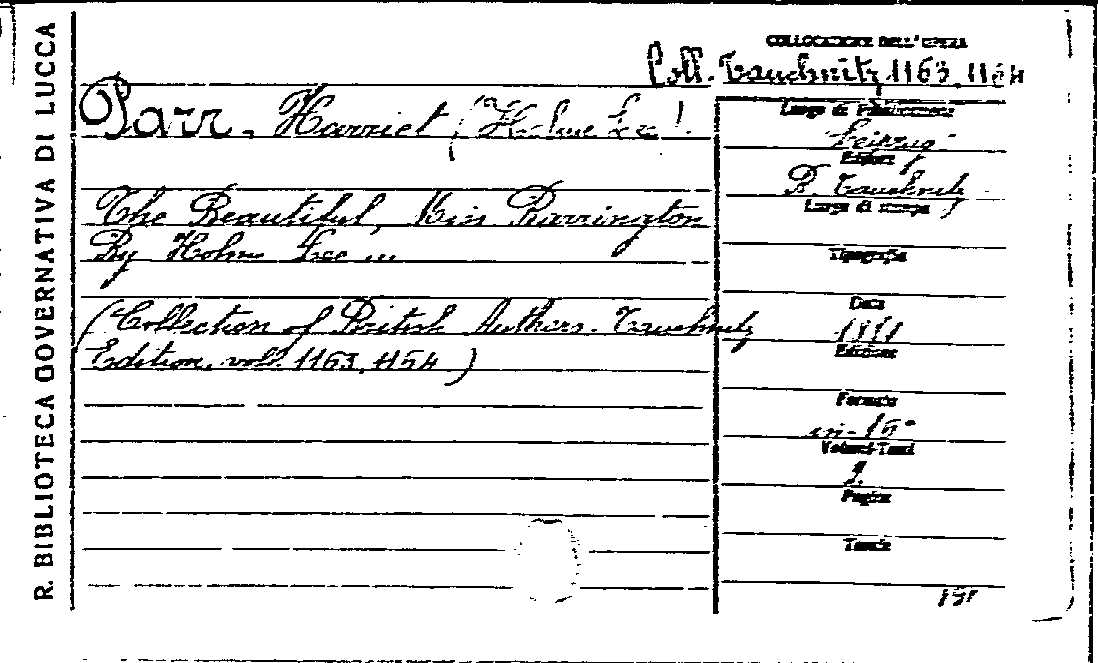 R. BIBLIOTECA GOVERNATIVA DI LUCCA
COLLOCAZIONE DELL'OPERA
Coll. Tauchnitz 1163, 1164
Parr, Harriet (Holme Lee).
The Beautiful, Miss Barrington
By Holme Lee ...
(Collection of British Authors. Tauchnitz
Edition, voll. 1163, 1164)
Luogo di Pubblicazione
Leipzig
Editore
B. Tauchnitz
Luogo di stampa
Tipografia
Data
Edizione
Formato
in-16°
Volumi-Tomi
2.
Pagine
Tavole